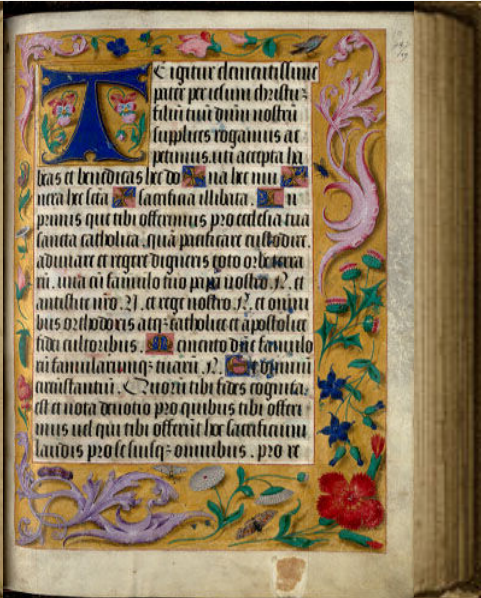 TE igitur clementissime
pater per iesum christu
filiu tuu dnm nostru
supplices rogamus ac
petimus. uti accepta ha
beas et benedicas hec do na hec mu
nera hec scta sacrificia illibata. In
primis que tibi offerimus pro ecclesia tua
sancta catholica. quā pacificare custodire.
adunare et regere digneris toto orbe terra
rū. una cū famulo tuo papa nostro. N. et
antistite nro. N. et rege nostro. N. et omni
bus orthodoxis atq catholice et apostolice
fidei cultoribus. Memento dne famulo
rū famularumq tuarū. N. Et omniū
circūstantiū. Quorū tibi fides cognita
est et nota deuotio pro quibus tibi offeri
mus uel qui tibi offerūt hoc sacrificium
laudis pro se suisq omnibus. pro re